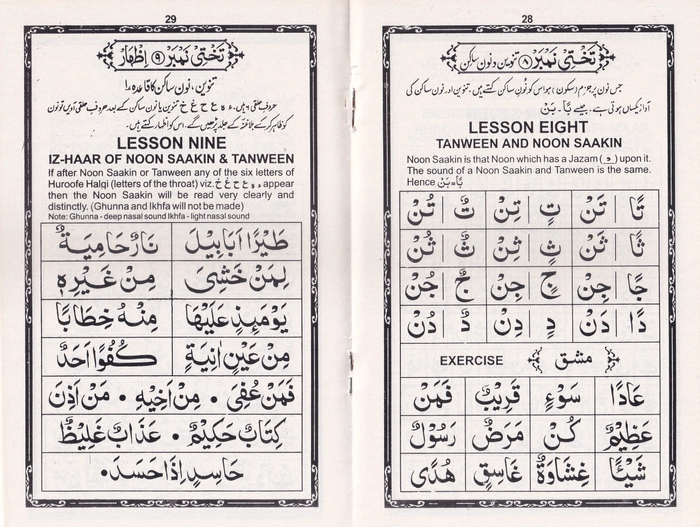 28
تختی نمبر ۸ تنوین و نون ساکن
جس نون پر جزم (سکون) ہو اس کو نون ساکن کہتے ہیں۔ تنوین اور نون ساکن کی
آواز یکساں ہوتی ہے۔ جیسے بًا۔ بَنْ
LESSON EIGHT
TANWEEN AND NOON SAAKIN
Noon Saakin is that Noon which has a Jazam ( ) upon it.
The sound of a Noon Saakin and Tanween is the same.
Hence بًا۔ بَنْ
تًا تَنْ تٍ تِنْ تٌ تُنْ
ثًا ثَنْ ثٍ ثِنْ ثٌ ثُنْ
جًا جَنْ جٍ جِنْ جٌ جُنْ
دًا دَنْ دٍ دِنْ دٌ دُنْ
EXERCISE مشق
عَادًا سَوْءٍ قَرِيْبٌ فَمَنْ
عَظِيْمٌ كُنْ مَرَضٌ رَسُوْلٌ
شَيْئًا غِشَاوَةٌ غَاسِقٍ هُدًى
29
تختی نمبر ۹ اظہار
تنوین، نون ساکن کا قاعدہ ۱
حروف حلقی ۶ ہیں۔ ء ہ ع ح غ خ تنوین یا نون ساکن کے بعد حروف حلقی آویں تو نون
کو ظاہر کرکے بلا غنہ کے جلد پڑھیں گے۔ اس کو اظہار کہتے ہیں۔
LESSON NINE
IZ-HAAR OF NOON SAAKIN & TANWEEN
If after Noon Saakin or Tanween any of the six letters of
Huroofe Halqi (letters of the throat) viz. ء ہ ع ح غ خ appear
then the Noon Saakin will be read very clearly and
distinctly. (Ghunna and Ikhfa will not be made)
Note: Ghunna - deep nasal sound Ikhfa - light nasal sound
طَيْرًا اَبَابِيْلَ نَارٌ حَامِيَةٌ
لِمَنْ خَشِىَ مِنْ غَيْرِهٖ
يَوْمَئِذٍ عَلَيْهَا مِنْهُ خِطَابًا
مِنْ عَيْنٍ اٰنِيَةٍ كُفُوًا اَحَدٌ
فَمَنْ عُفِىَ • مِنْ اَخِيْهِ • مَنْ اَذِنَ
كِتَابٌ حَكِيْمٌ • عَذَابٌ غَلِيْظٌ
حَاسِدٍ اِذَا حَسَدَ •